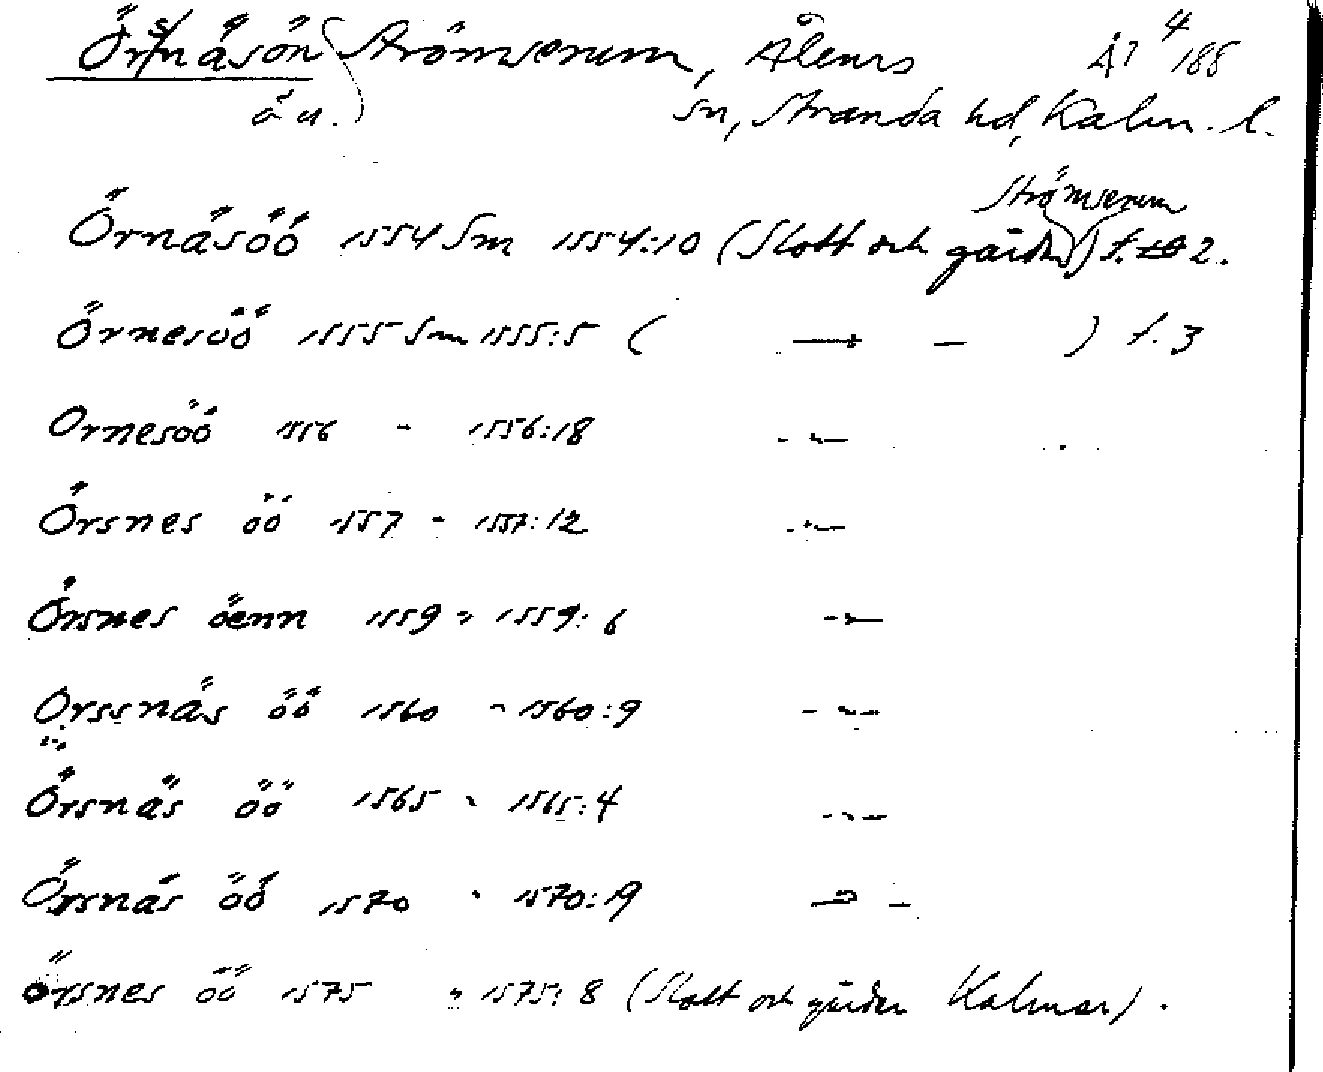 Örsnäsön Strömserum, Ålems
ä u. sn, Stranda hd, Kalm. l.
Örnäsöö 1554 Sm 1554:10 (Slott och gårdar Strömserum) f. 2.
Örnesöö 1555 Sm 1555:5 ( — " — ) f. 3
Ornesöö 1556 - 1556:18 - " -
Örsnes öö 1557 - 1557:12 - " -
Örsnes öenn 1559 " 1559:6 - " -
Orssnäs öö 1560 " 1560:9 - " -
Örsnäs öö 1565 " 1565:4 - " -
Örsnäs öö 1570 " 1570:19 - " -
Örsnes öö 1575 " 1575:8 (Slott och gårdar Kalmar).